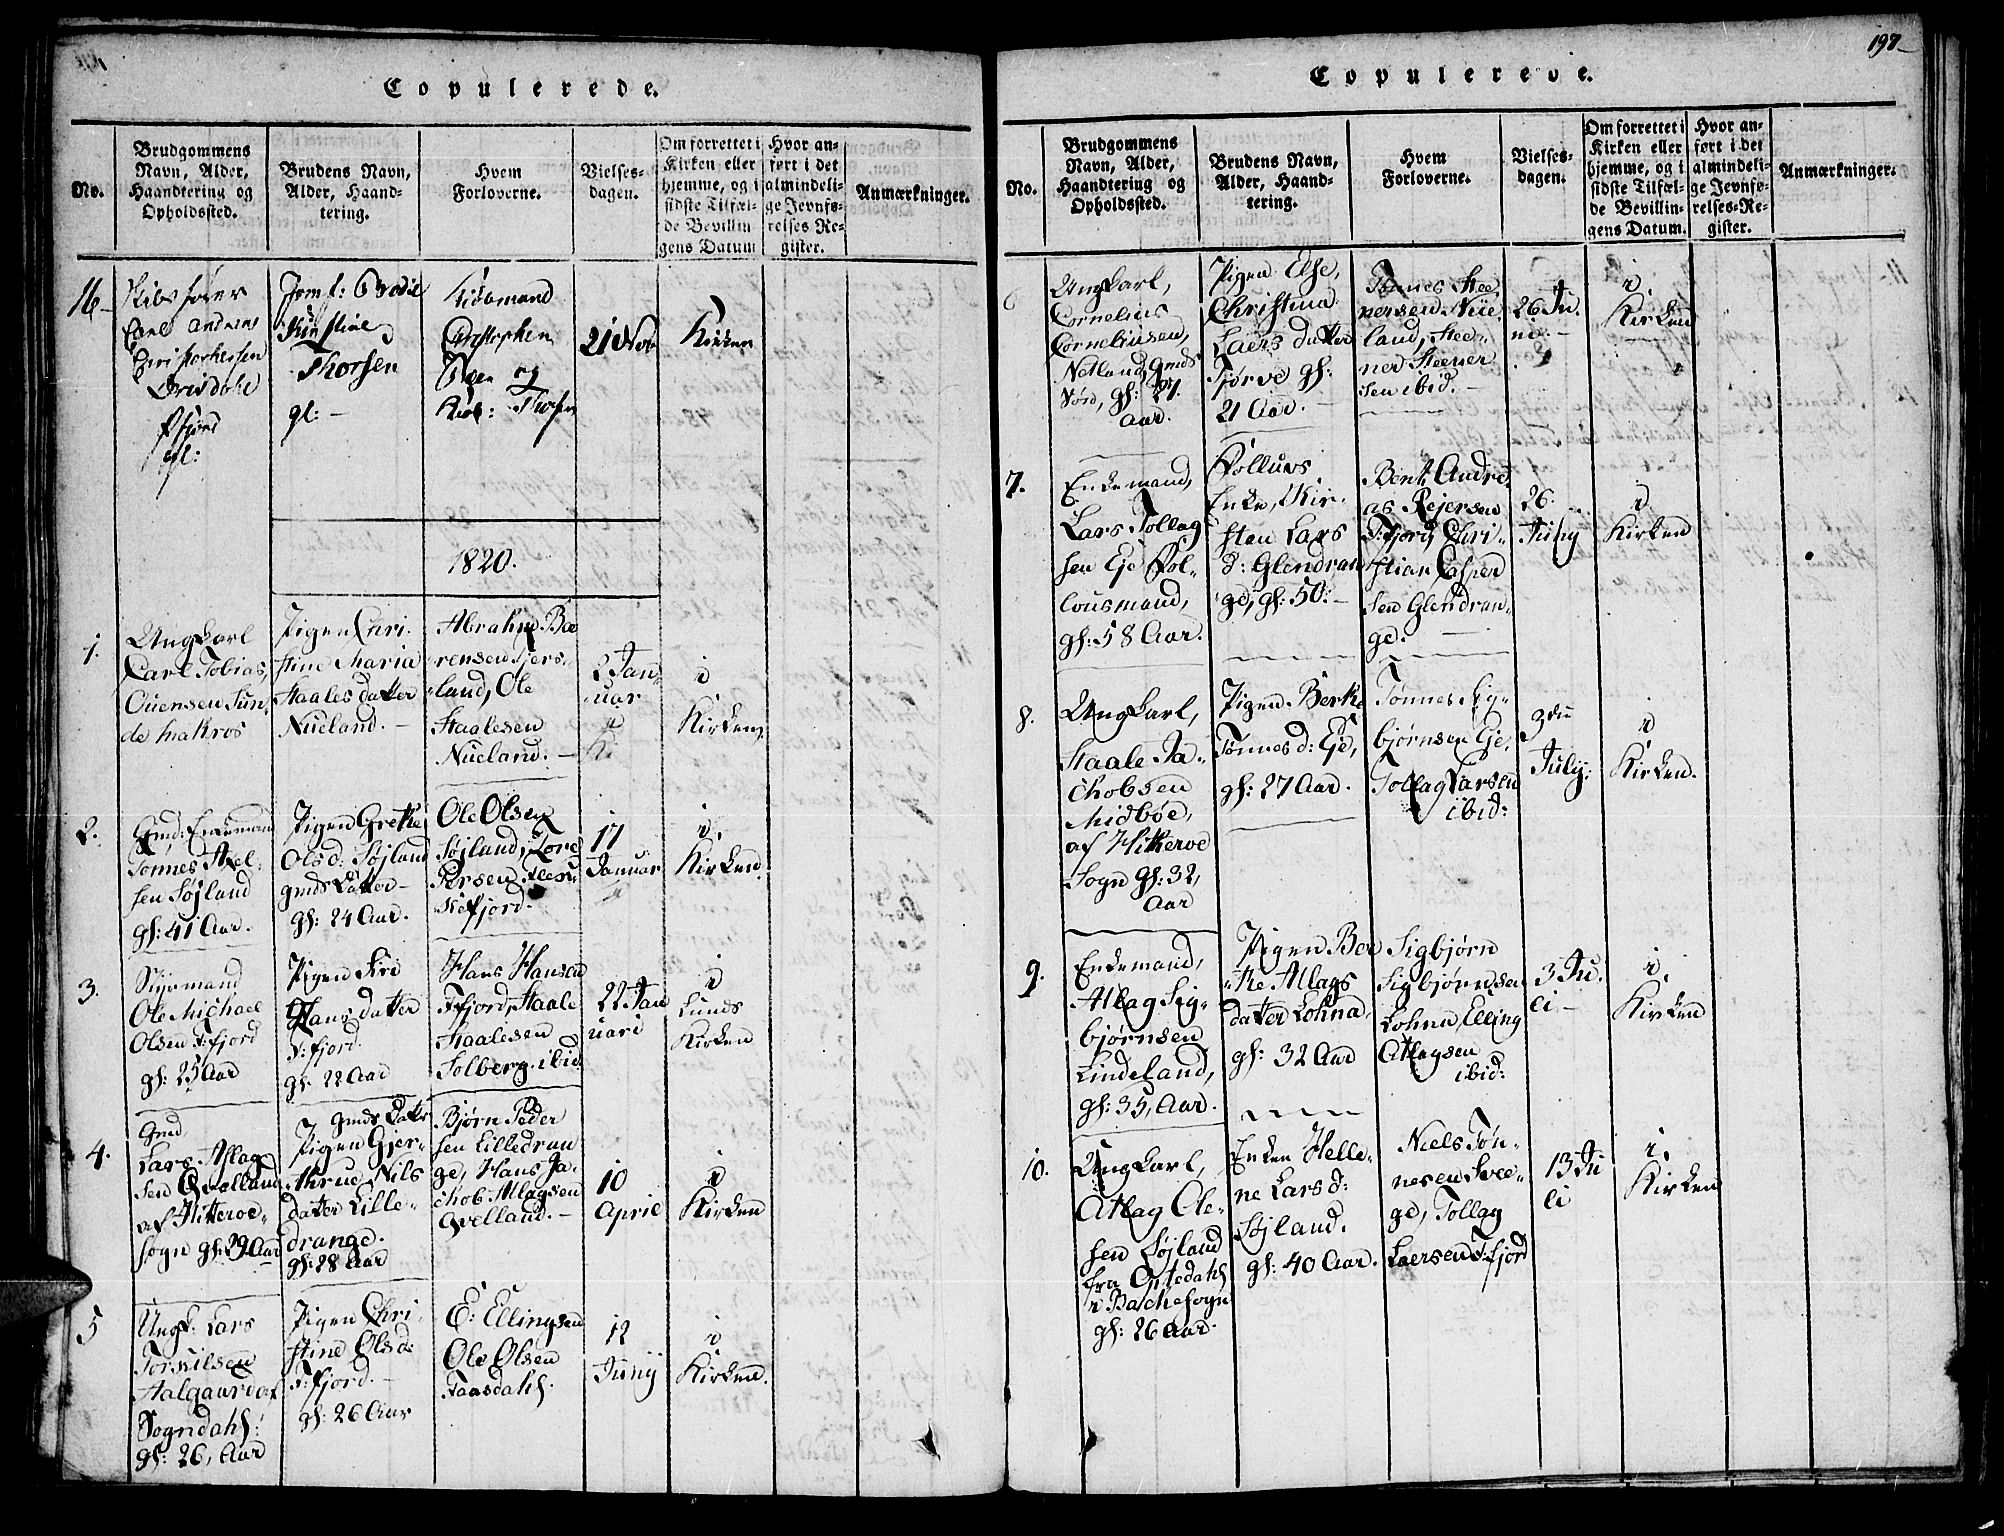 Copulerede.
No.
Brudgommens
Navn, Alder,
Haandtering og
Opholdssted.
Brudens Navn,
Alder, Haand-
tering.
Hvem
Forloverne.
Vielses-
dagen.
Om forrettet i
Kirken eller
hjemme, og i
sidste Tilfæl-
de Bevillin-
gens Datum
Hvor an-
ført i det
almindeli-
ge Jevnfø-
relses-Re-
gister.
Anmærkninger.
16
Carl Andreas
gl:
Jomf:
Thorsen
gl: -
Christophen
Olsen og
Thorsen
21 Nov
Kirken
1820.
1.
Ungkarl
Carl Tobias
Ouensen Sun-
de
Pigen Chri-
stine Maria
Staales datter
Nueland. -
Abrahm Bee
rensen Fjers-
land, Ole
Staalesen
Nueland. -
2 Jan-
uar
i
Kirken
2.
Gmd: Enkemand
Tønnes Axel-
sen Søjland
gl: 41 Aar.
Pigen Grethe
Olsd: Søjland
gmds Datter -
gl: 24 Aar.
Ole Olsen
Søjland, Tore
Persen
fjord.
17
Januar
i.
Kirken.
3.
Styrmand
Ole Michael
Olsen F:fjord
gl: 25 Aar
Pigen Siri
Hans datter
F:fjord.
gl: 22 Aar
Hans Hansen
F:fjord, Staale
Staalesen
Solberg. ibid
22 Jan
uari
i
Lunds
Kirken
4.
Gmd
Lars Atlag
sen Qvelland
af Hitterøe-
sogn gl: 29 Aar
gmds Datter
Pigen Gjer-
thrue Nils
datter Lille-
drange.
gl: 28 Aar
Bjørn Peder
sen Lilledran
ge, Hans Ja-
chob Atlagsen
Qvelland. -
10
April
i
Kirken
5
Ungk: Lars
Torkilsen
Aalgaard af
Sogndahl:
gl: 26, Aar
Pigen Chri-
stine Olsd:
F:fjord. -
gl: 26 Aar
E: Ellingsen
Ole Olsen
Raasdahl.
12
Junij
i
Kirken.
197
Copulerede.
No.
Brudgommens
Navn, Alder,
Haandtering og
Opholdssted.
Brudens Navn,
Alder, Haand-
tering.
Hvem
Forloverne.
Vielses-
dagen.
Om forrettet i
Kirken eller
hjemme, og i
sidste Tilfæl-
de Bevillin-
gens Datum.
Hvor an-
ført i det
almindeli-
ge Jevnfø-
relses-Re-
gister.
Anmærkninger.
6
Ungkarl,
Cornelius
Corneliusen,
Netland, Gmds
Søn, gl: 27.
Aar.
Pigen Else,
Christina
Laers datter
Tjørve gl:
21 Aar. -
Tønnes Stee
nersen Nue
land, Stee-
ner Steener
sen ibid. -
26 Ju-
ni. -
i
Kirken
7.
Enkemand,
Lars Tollag
sen Eje Sol-
gl: 58 Aar.
Enke, Kir-
sten Lars
d: Glendran
ge, gl: 50: -
Bent Andre
as Rejersen
F:fjord, Chri-
stian Casper
sen Glendran-
ge. -
26.
July
i
Kirken
8.
Ungkarl,
Staale Ja-
chobsen
Midbøe,
af Hitterøe
Sogn gl: 32,
Aar
Pigen Berthe
Tønnes d: Eje,
gl: 27 Aar.
Tønnes Sig-
bjørnsen Eje,
Tollag Larsen
ibid:
3
July.
i
Kirken.
9.
Enkemand,
Atlag Sig-
bjørnsen
Lindeland,
gl: 35, Aar.
Pigen Ber
the Atlags
datter Lohna,
gl: 32 Aar
Sigbjørn
Sigbjørnsen
Lohna, Elling
Atlagsen
ibid:
3 Ju-
li -
i.
Kirken
10.
Ungkarl,
Atlag Ole-
sen Søjland
fra Optedahl
i Bachesogn
gl: 26 Aar.
Enken Helle-
ne Lars d:
Søjland.
gl: 40 Aar.
Niels Tøn-
nesen Sve-
ge, Tollag
Laersen F:fjord
13 Ju
li
i.
Kirken